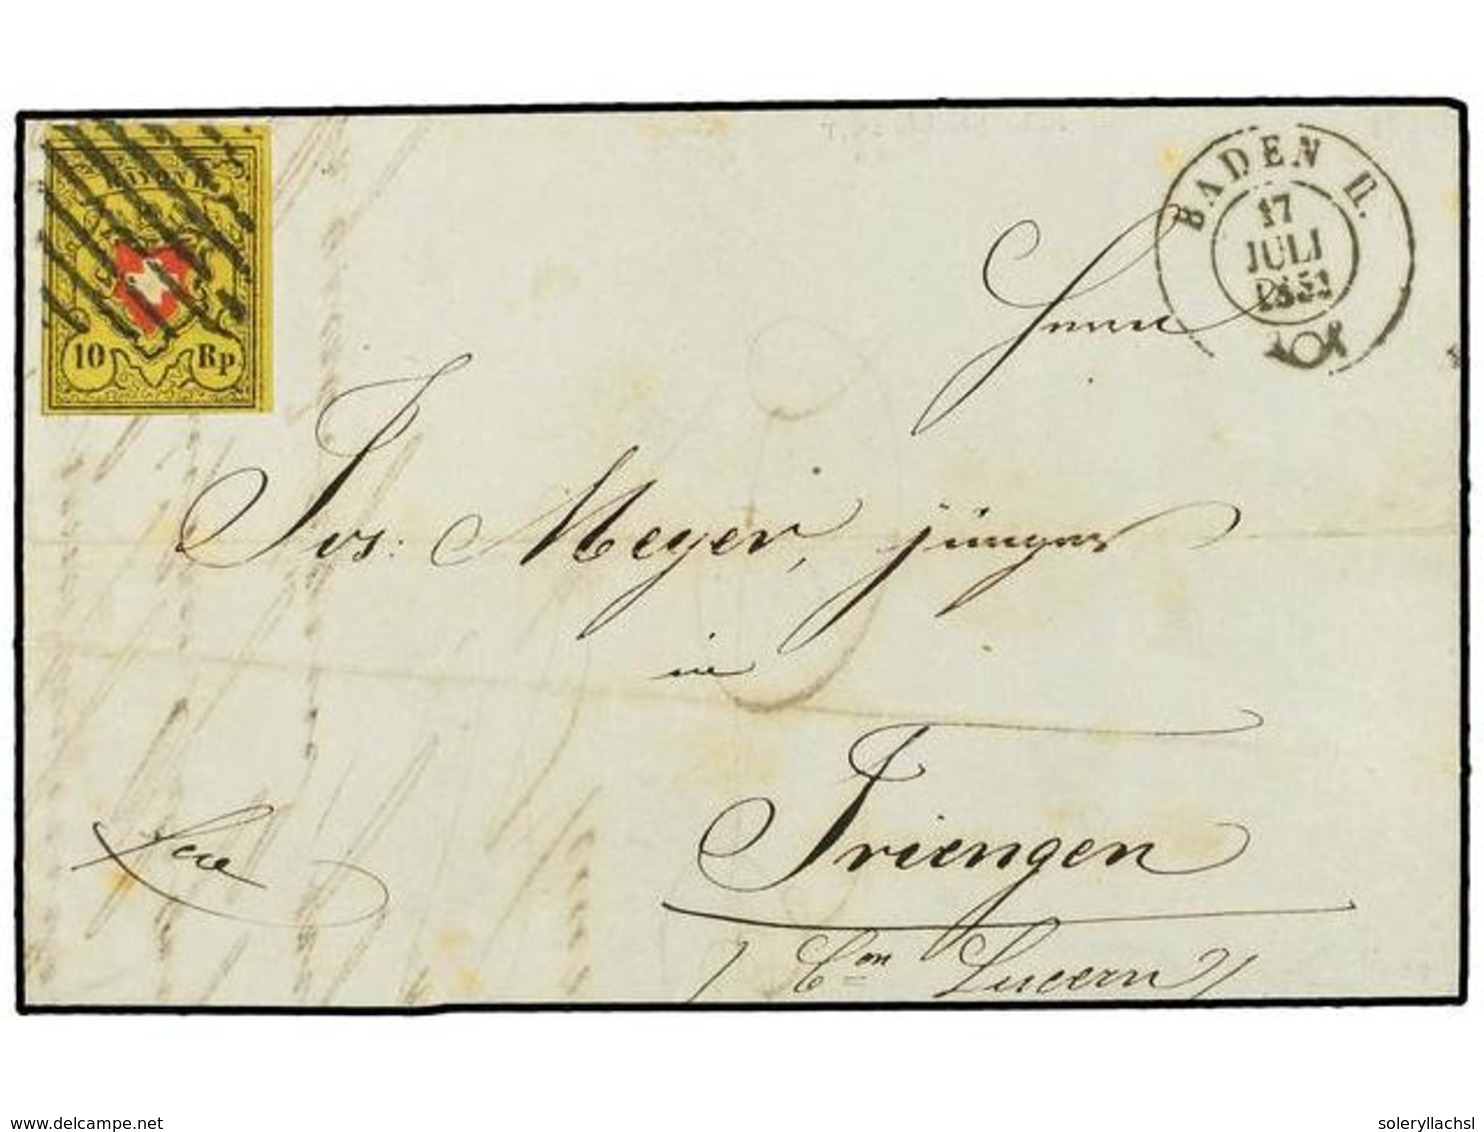 RAYON II.
10 Rp
BADEN
17
JULI
Herrn
Jos: Meyer, jünger
in
Triengen
Con Lucern
www.delcampe.net
soleryllachsl